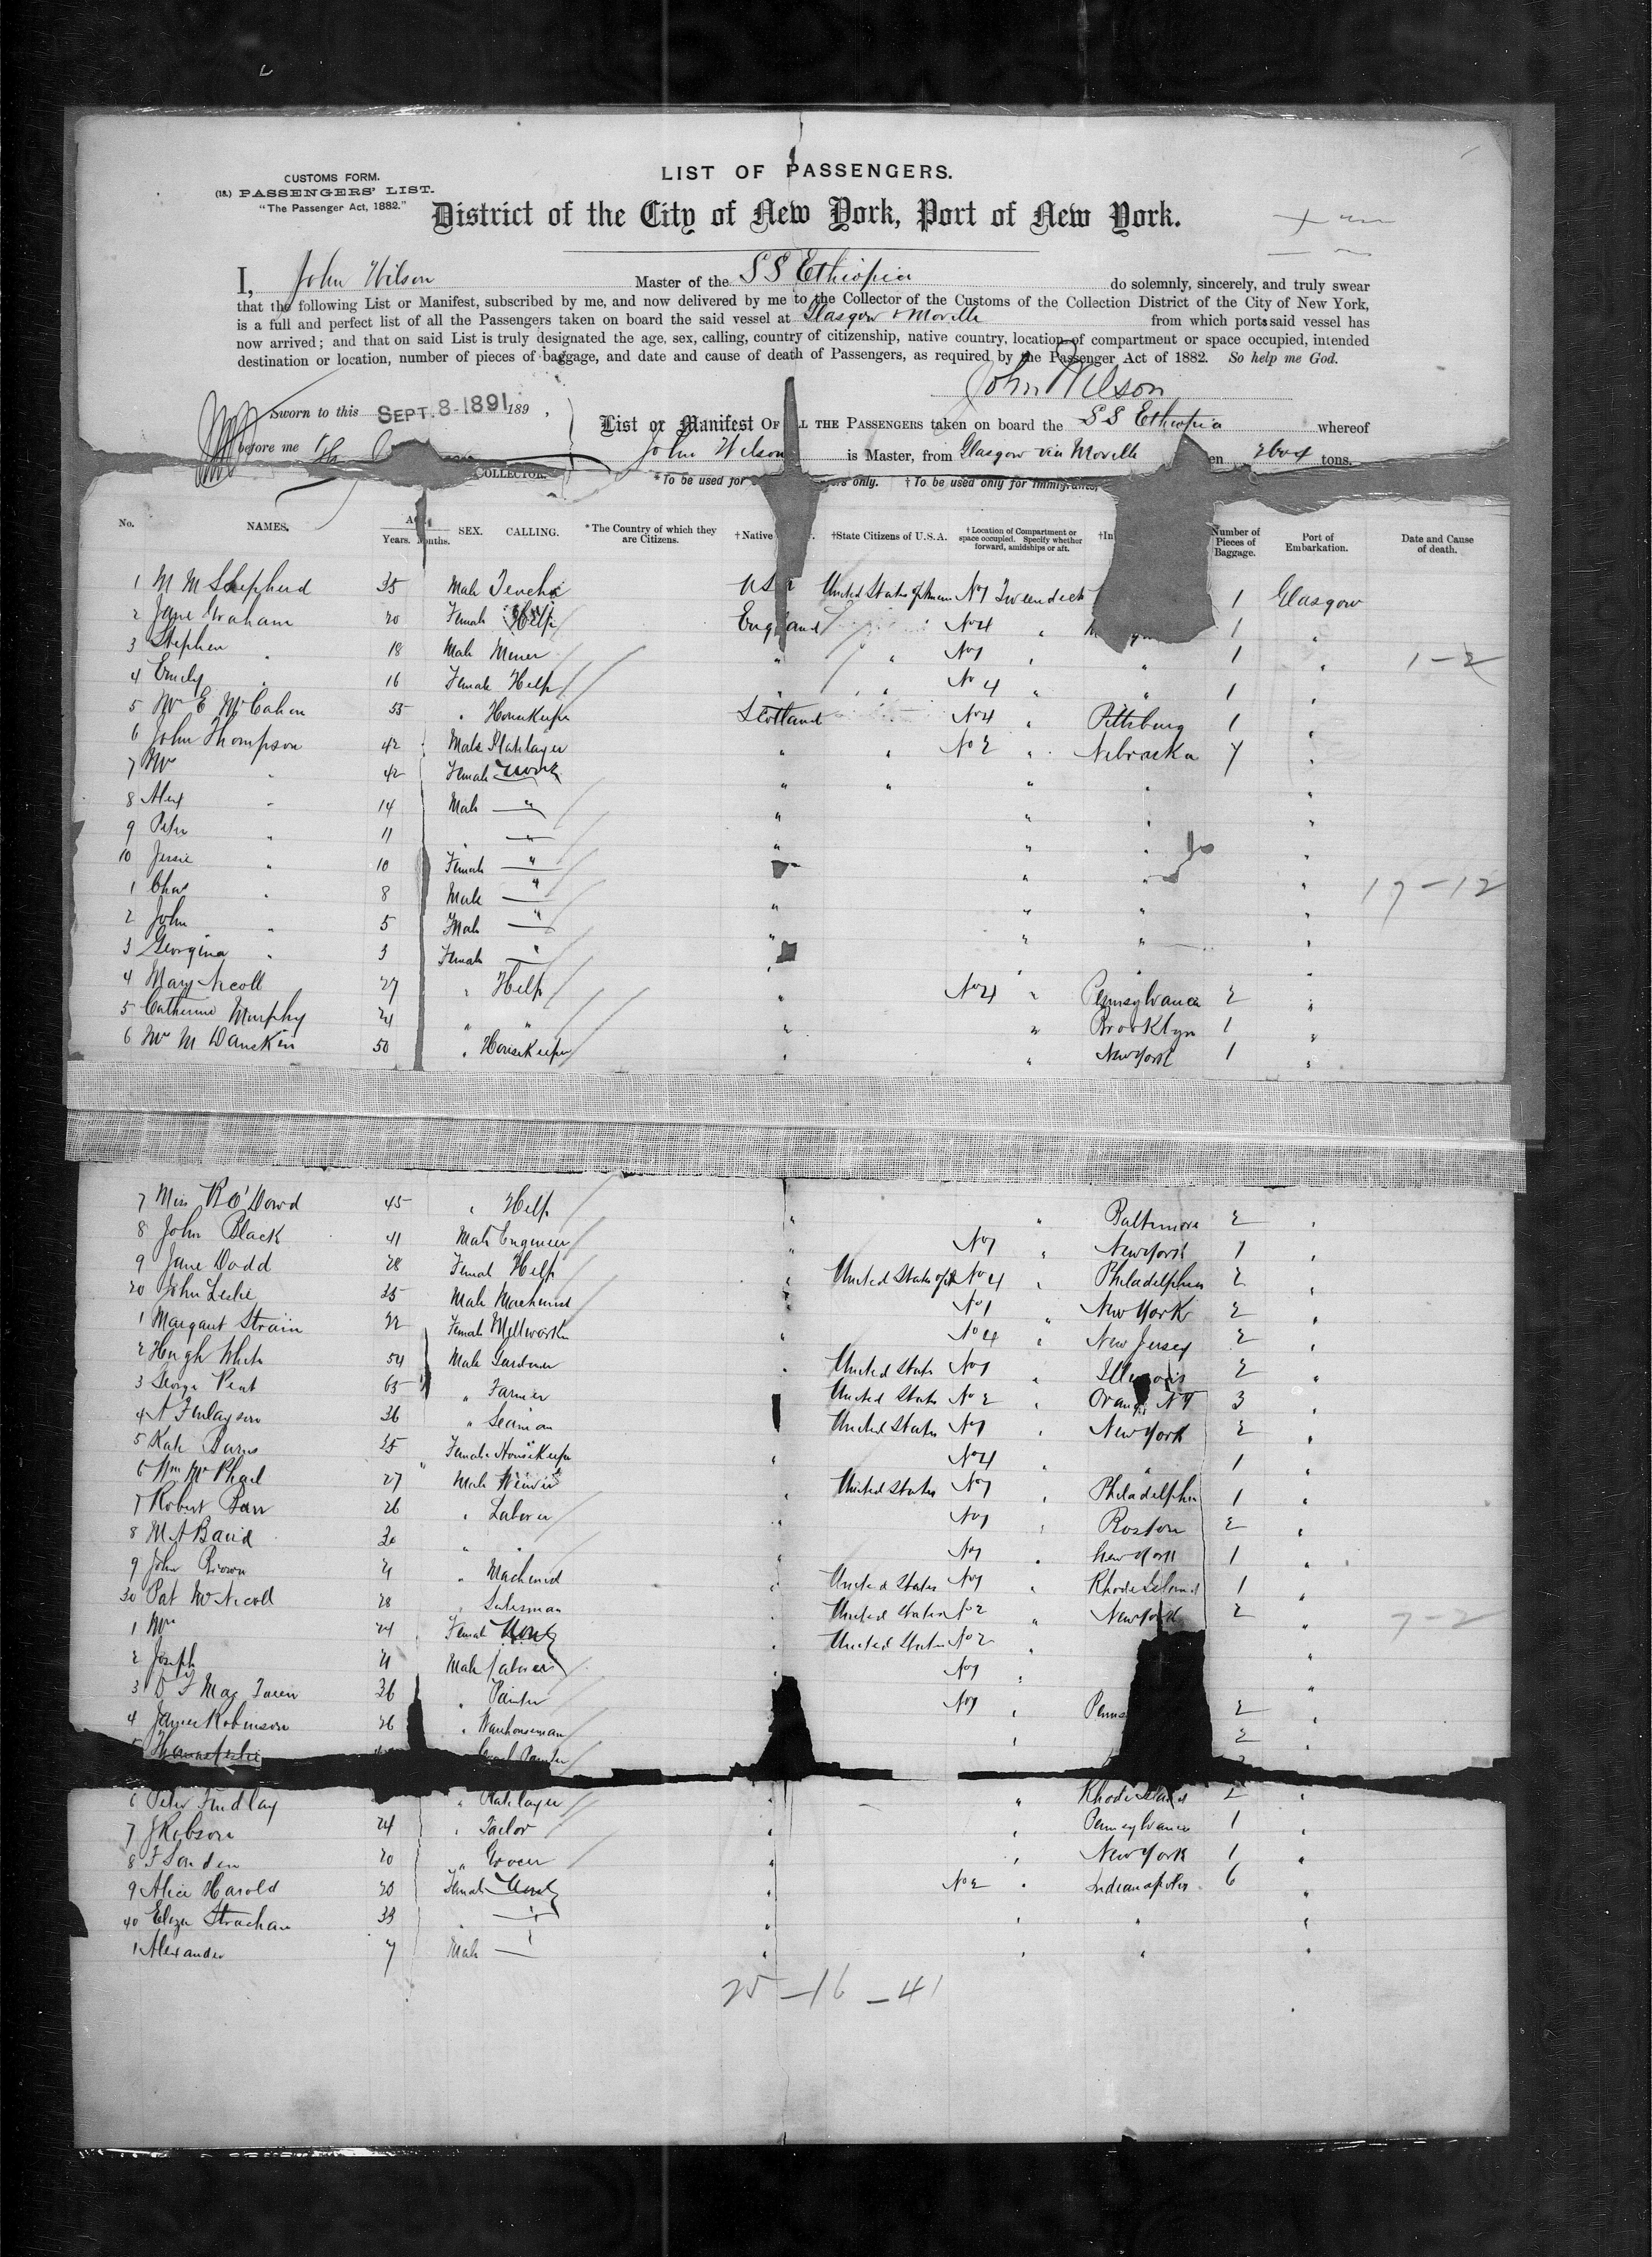 CUSTOMS FORM.
(18.) PASSENGERS' LIST.
"The Passenger Act, 1882."
LIST OF PASSENGERS.
District of the City of New York, Port of New York.
I, John Wilson Master of the SS Ethiopia do solemnly, sincerely, and truly swear
that the following List or Manifest, subscribed by me, and now delivered by me to the Collector of the Customs of the Collection District of the City of New York,
is a full and perfect list of all the Passengers taken on board the said vessel at Glasgow & Moville from which ports said vessel has
now arrived; and that on said List is truly designated the age, sex, calling, country of citizenship, native country, location of compartment or space occupied, intended
destination or location, number of pieces of baggage, and date and cause of death of Passengers, as required by the Passenger Act of 1882. So help me God.
John Wilson
Sworn to this SEPT. 8-1891 189 ,
before me
List or Manifest OF ALL THE PASSENGERS taken on board the SS Ethiopia whereof
John Wilson is Master, from Glasgow via Moville 2604 tons.
COLLECTOR.
*To be used for only. †To be used only for Immigrants.
No. NAMES. AGE Years. Months. SEX. CALLING. *The Country of which they are Citizens. †Native †State Citizens of U.S.A. †Location of Compartment or space occupied. Specify whether forward, amidships or aft. †In Number of Pieces of Baggage. Port of Embarkation. Date and Cause of death.
1 M M Shepherd 35 Male USA No 1 1 Glasgow
2 Jane Graham 20 Female Help England No 4 " 1 "
3 Stephen " 18 Male Miner " " No 1 " " 1 " 1-2
4 Emily " 16 Female Help " " No 4 " " 1 "
5 Mrs E McCahon 55 " Housekeeper Scotland No 4 " Pittsburg 1 "
6 John Thompson 42 Male Platelayer " " No 2 " Nebraska 7 "
7 Mrs " 42 Female " " " "
8 Alex " 14 Male " " " " "
9 Peter " 11 " " " " " "
10 Jessie " 10 Female " " " " "
1 Chas " 8 Male " " " " " 17-12
2 John " 5 Male " " " " "
3 Georgina " 3 Female " " " " "
4 Mary Nicoll 27 " Help " No 4 " Pennsylvania 2 "
5 Catherine Murphy 24 " " " " Brooklyn 1 "
6 Mrs M Danskin 50 " Housekeeper " " New York 1 "
7 Miss R O'Dowd 45 " Help " " Baltimore 2 "
8 John Black 41 Male Engineer " No 1 " New York 1 "
9 Jane Dodd 28 Female Help " United States No 4 " Philadelphia 2 "
20 John Leslie 35 Male Machinist " No 1 " New York 2 "
1 Margaret Strain 22 Female Millworker " No 4 " New Jersey 2 "
2 Hugh White 54 Male Gardener " United States No 1 " Illinois 2 "
3 George Peat 65 " Farmer United States No 2 Orange NY 3 "
4 A Finlayson 36 " Seaman United States No 1 " New York 2 "
5 Kate Burns 35 Female Housekeeper " No 4 " " 1 "
6 Wm McPhail 27 Male Weaver " United States No 1 " Philadelphia 1 "
7 Robert Barr 26 " Laborer " No 1 " Boston 2 "
8 M A Baird " " " No 1 " New York 1 "
9 John Brown 21 " Machinist " United States No 1 " Rhode Island 1 "
30 Pat McNicoll 28 " Salesman United States No 2 " New York 2 " 7-2
1 Mrs 24 Female " United States No 2 " "
2 Joseph 21 Male Laborer " No 1 " "
3 36 " Painter No 1 " Penns 2 "
4 James Robinson 26 " Warehouseman " 2 "
5
6 Peter Findlay " Platelayer " " Rhode Island 2 "
7 J Robson 24 " Tailor " " Pennsylvania 1 "
8 20 " Grocer " " New York 1 "
9 Alice Harold 20 Female " No 2 " Indianapolis 6 "
40 Eliza Strachan 33 " " " " " "
1 Alexander 7 Male " " " " "
25-16-41